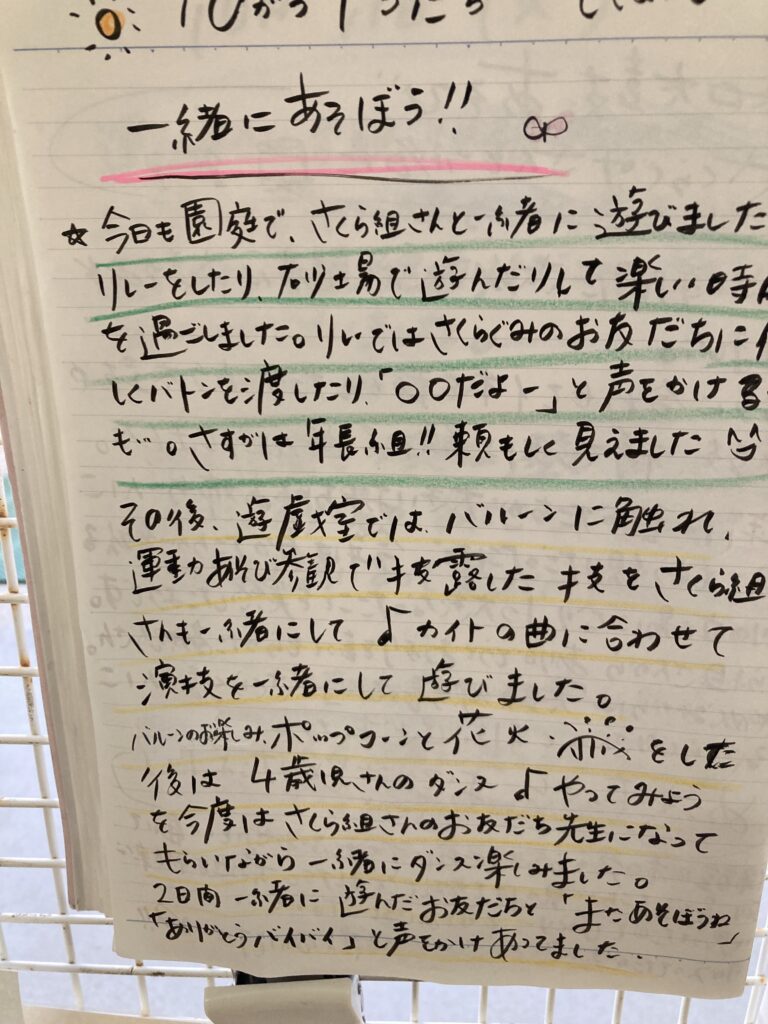 一緒にあそぼう!!
☆今日も園庭で、さくら組さんと一緒に遊びました
リレーをしたり、砂場で遊んだりして楽しい時
を過ごしました。りいではさくらぐみのお友だちに
しくバトンを渡したり、「〇〇だよー」と声をかける
も…。さすがは年長組!!頼もしく見えました
その後、遊戯室では、バルーンに触れ、
運動あそび参観で披露した技をさくら組
さんも一緒にして♪カイトの曲に合わせて
演技を一緒にして遊びました。
バルーンのお楽しみ、ポップコーンと花火をした
後は4歳児さんのダンス♪やってみよう
を今度はさくら組さんのお友だち先生になって
もらいながら一緒にダンス楽しみました。
2日間一緒に遊んだお友だちと「またあそぼうね」
「ありがとうバイバイ」と声をかけあってました.